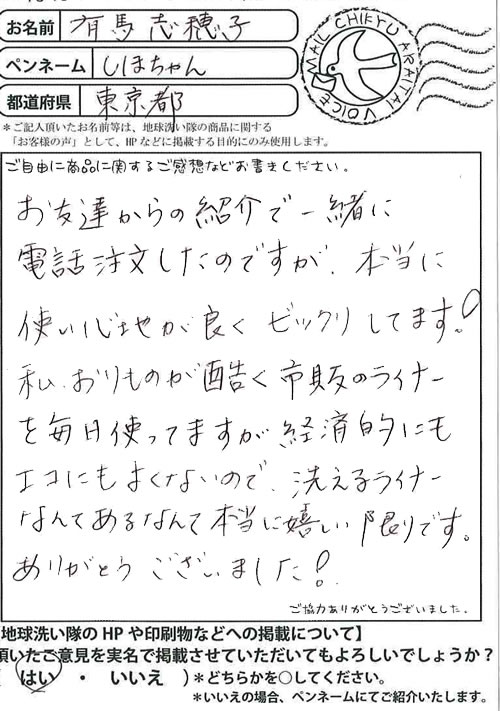 お名前 有馬志穂子
MAIL CHIKYU ARAITAI VOICE
ペンネーム しほちゃん
都道府県 東京都
＊ご記入頂いたお名前等は、地球洗い隊の商品に関する
「お客様の声」として、HPなどに掲載する目的にのみ使用します。
ご自由に商品に関するご感想などお書きください。
お友達からの紹介で一緒に
電話注文したのですが、本当に
使い心地が良くビックリしてます!
私、おりものが酷く市販のライナー
を毎日使ってますが経済的にも
エコにもよくないので、洗えるライナー
なんてあるなんて本当に嬉しい限りです。
ありがとうございました!
ご協力ありがとうございました。
地球洗い隊のHPや印刷物などへの掲載について】
頂いたご意見を実名で掲載させていただいてもよろしいでしょうか？
はい ・ いいえ ）＊どちらかを○してください。
＊いいえの場合、ペンネームにてご紹介いたします。